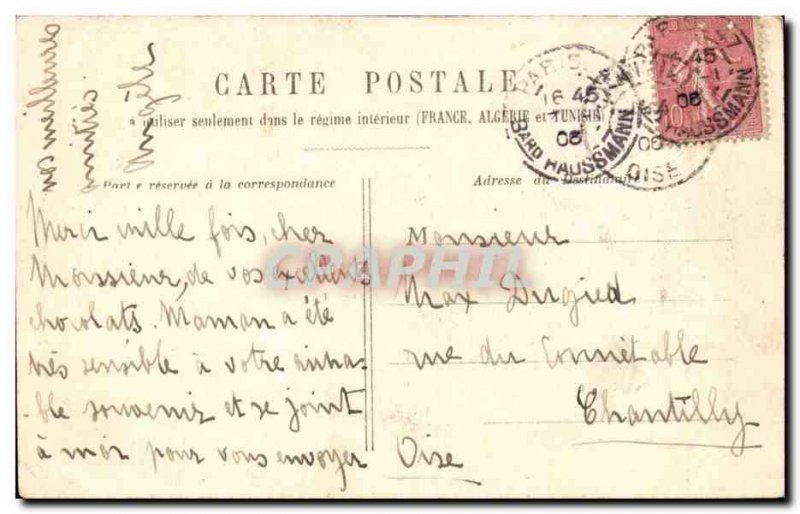 CARTE POSTALE
à utiliser seulement dans le régime intérieur (FRANCE, ALGÉRIE et TUNISIE)
Partie réservée à la correspondance
Adresse du Destinataire
Merci mille fois, cher
Monsieur, de vos excellents
chocolats. Maman a été
très sensible à votre aima-
ble souvenir et se joint
à moi pour vous envoyer
nos meilleures
amitiés.
Monsieur
Max Dugied
rue du Connétable
Chantilly
Oise
PARIS
16 45
06
BARD HAUSSMANN
PARIS
45
06
HAUSSMANN
06
OISE
10
CRAPHIL